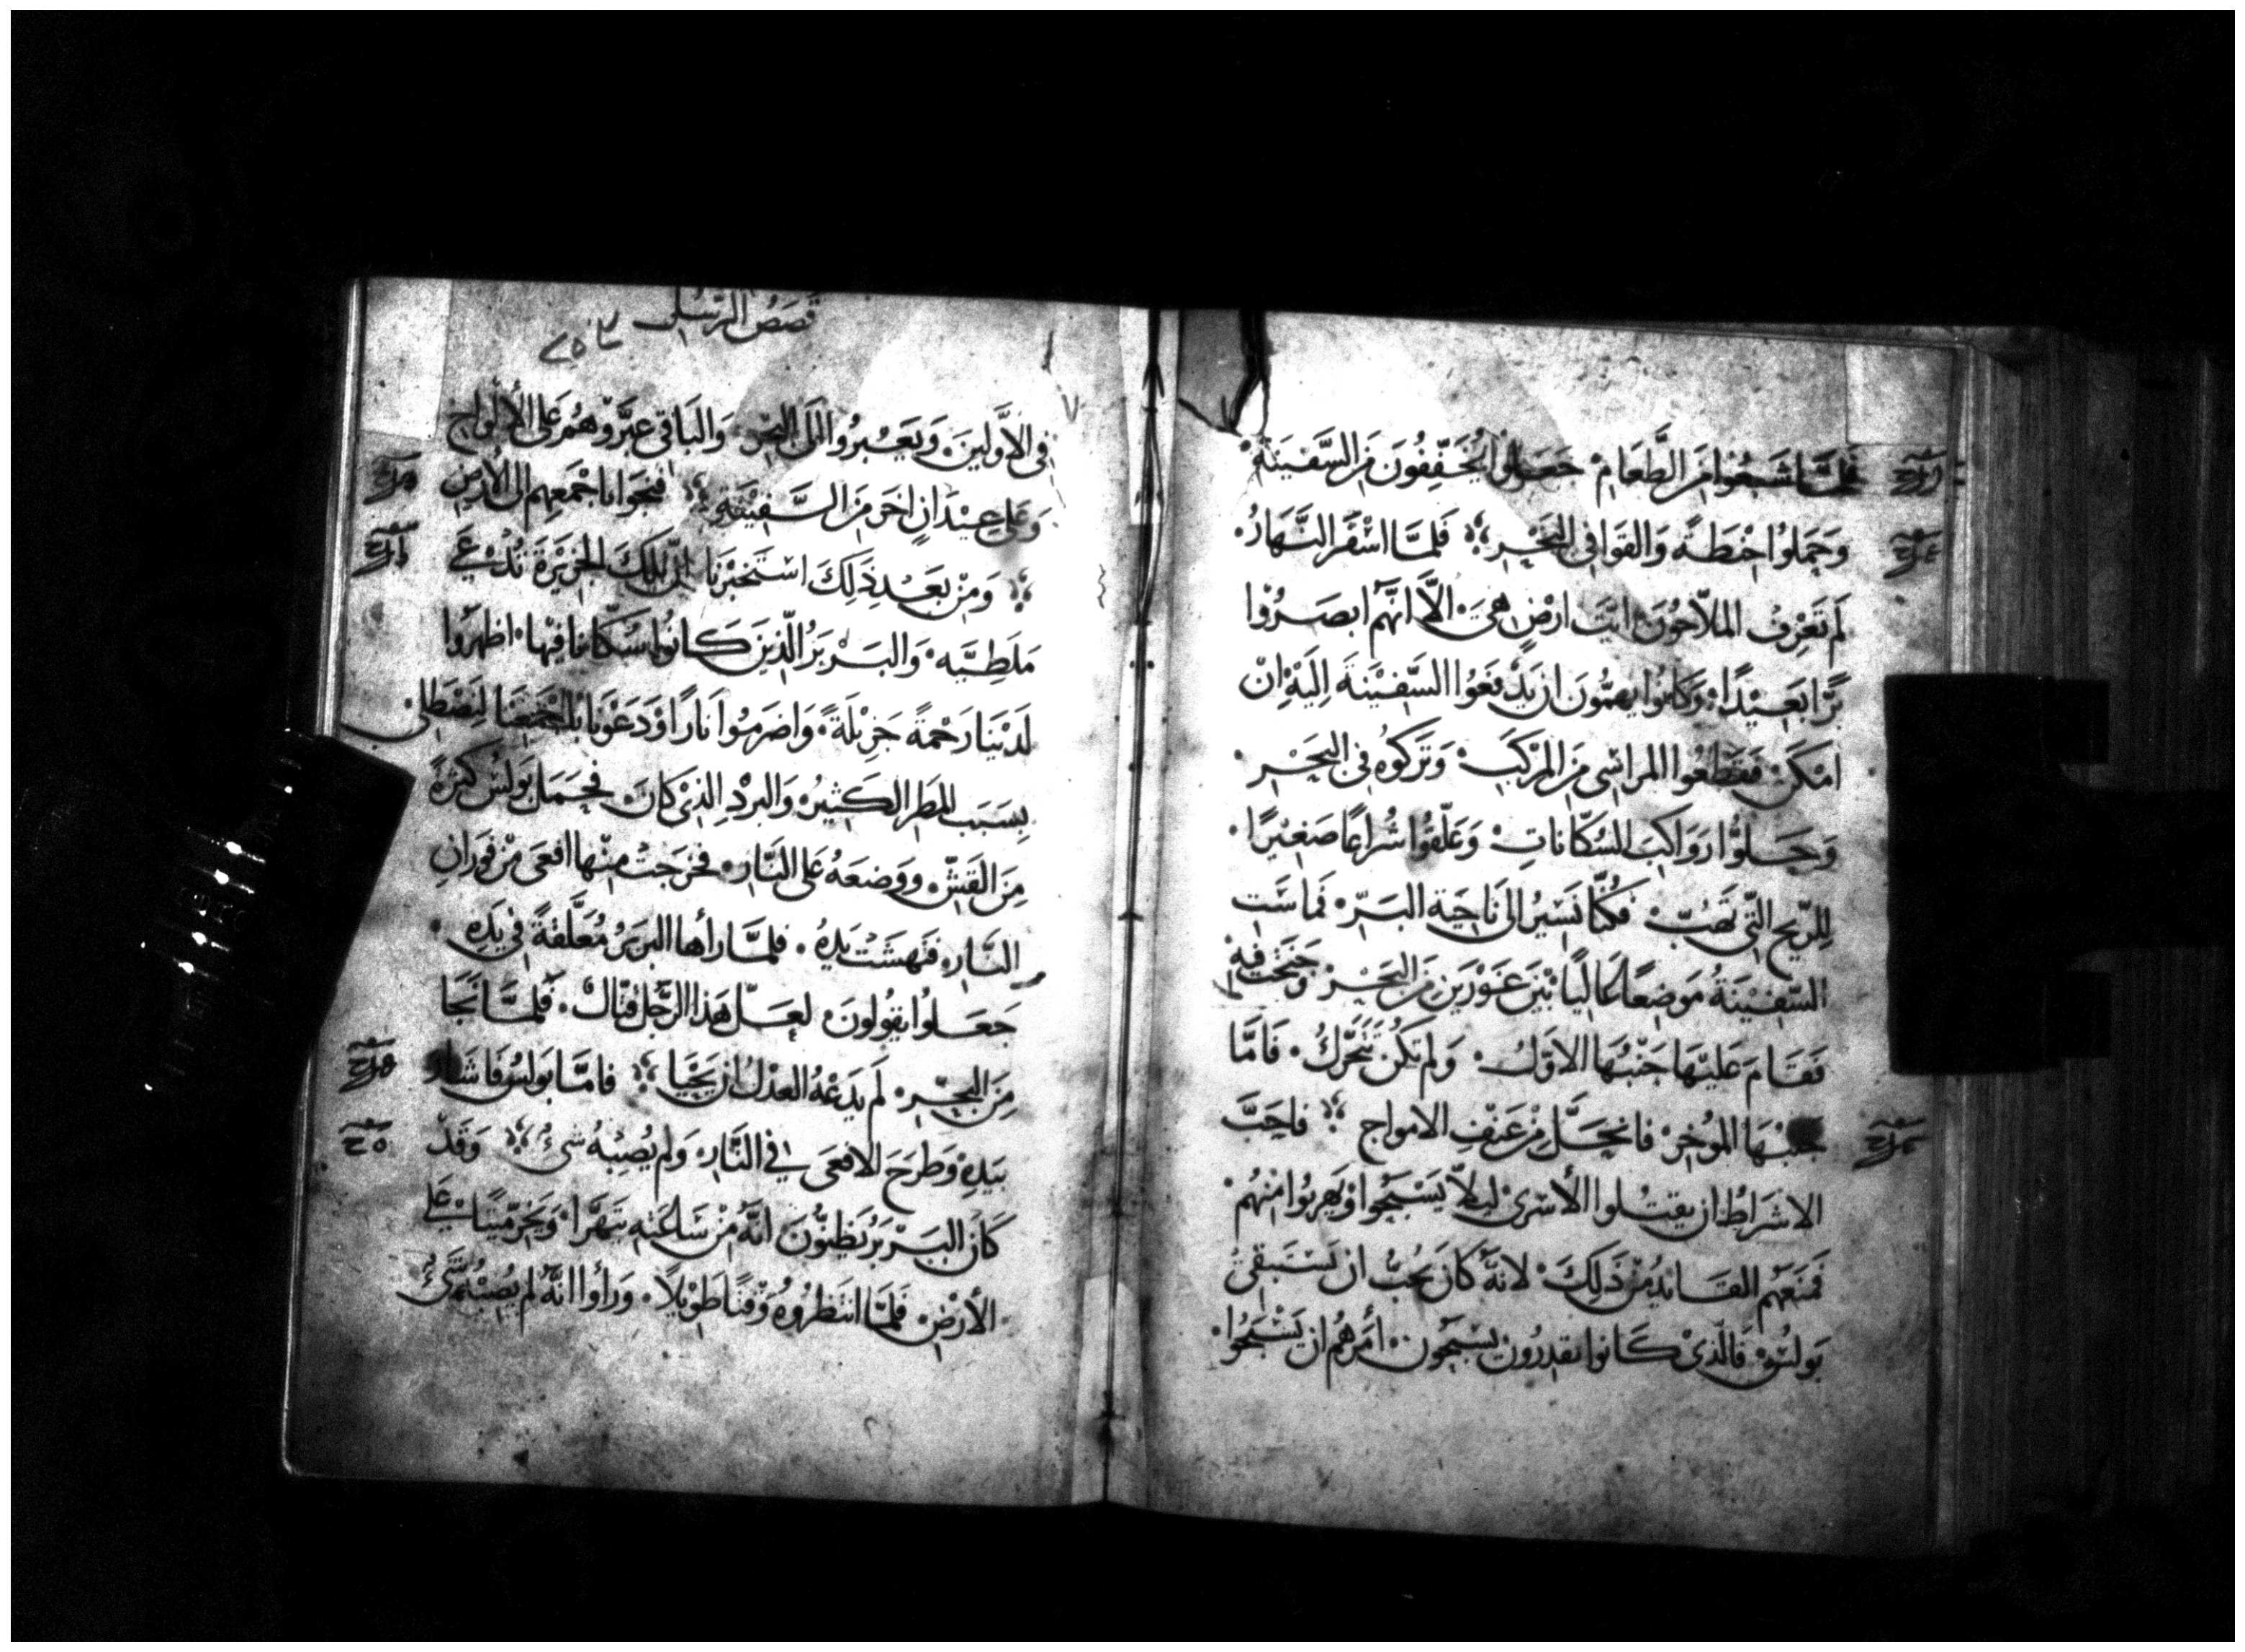 فَلَمَّا شَبِعُوا مِنَ الطَّعَامِ. جَعَلُوا يُخَفِّفُونَ مِنَ السَّفِينَة.
وَحَمَلُوا حِنْطَةً وَالقَوا فِي البَحْرِ. فَلَمَّا اسْفَرَ النَّهَارُ.
لَم تَعْرِف الملاَّحُونَ ايَّت ارْضٍ هِيَ. الَّا انَّهُم ابصَرُوْا
بَرًّا بَعِيْدًا. وَكَانُوا يهمُّونَ ان يَدْفَعُوا السَّفِيْنَةَ اِلَيْهِ اِنْ
امْكَنَ. فَقَطَعُوا المراسِى مِنَ المَرْكَبِ. وَتَرَكوُه فِي البَحْرِ.
وَحَلُّوا رَوَاكِبَ السُكَّانَاتِ. وَعَلَّقُوا شِرَاعًا صَغِيْرًا.
لِلرِّيحِ الَّتِي تَهُبّ. فَكُنَّا نَسِيْرُ الى نَاحِيَة البَرِّ. فَماسَّت
السَّفِيْنَةُ مَوضِعًا عَالِيًا بَيْنَ غَوْرَيْنِ مِنَ البَحْرِ. وَجَنَحَت فيهِ
فَقَامَ عَلَيْهَا جَنْبُهَا الاوّلُ. وَلَم تَكُن تَتَحَرَّكُ. فَامَّا
جَنْبُهَا المُوخِر. فانحَلَّ مِنْ عَنْفِ الامواج. فاحَبَّ
الاشَراطُ ان يقتُلوا الأَسْرىْ لِيلاَّ يَسْبَحُوا وَيَهربُوا مِنهُم.
فَمنَعَهُم القَايدُ مِنْ ذَلِكَ. لانَّهُ كان يُحبُّ ان يَسْتَبقِيَ
بَولُسَ. فَالَّذِيْ كَانوا يَقدِرُونَ يَسْبَحُونَ. أَمَرهُم ان يَسْبَحُوا.
قصَصُ الرُّسُل
فِى الاَوَّلِينَ. وَيَعْبُرُوا الى البَرّ. وَالبَاقي عبَّرُوْهُم عَلى الأَلْوَاحِ
وَعَلى عِيْدَانٍ اخَر مِنَ السَّفِيْنَةِ. فَنَجَوا باجْمَعِهِم الى الأَرْضِ
وَمِنْ بَعْدِ ذَلِكَ اسْتَخْبَرْنَا انَّ تِلكَ الجَزِيْرَةَ تُدْعى
مَلَطِيَّه. وَالبَرْبَرُ الَّذِينَ كَانُوا سُكَّانا فِيْهَا. اظهَرُوا
لَدَيْنَا رَحْمَةً جَزِيْلَةً. وَاضرَمُوا نَارًا وَدَعَوْنَا باجْمَعِنَا لِنَصْطَلى
بِسَبَب المَطَر الكَثِيْرِ وَالبَردِ الذِيْ كَانَ. فحَمَلَ بَولُسُ كَثرَةً
مِنَ القَشِّ. وَوَضَعَهُ عَلى النَّارِ. فخرَجَتْ مِنْها افعَى مِنْ فَوَرَانِ
النَّارِ. فَنَهشَتْ يَدَهُ. فلمَّا رأها البَربَرُ مُعَلَّقَةً في يَدِهِ.
جَعَلوا يَقُولونَ لعَلّ هَذا الرَّجُلَ قتَّالٌ. فَلَمَّا نَجَا
مِنَ البَحْرِ. لَم يَدَعْهُ العَدْلُ ان يَحْيَا. فامَّا بَولُسُ فَاشَار
بِيَدِهِ وَطَرَحَ الافعَى في النَّارِ. وَلَم يُصِبْهُ شيءٌ. وَقَدْ
كَانَ البَرْبَرُ يَظنُّونَ انَّهُ مِنْ سَاعَتِهِ يَتهَرَّا. وَيَخِرُّ مَيِّتًا على
الأَرْضِ. فَلَمَّا انتَظرُوهُ وَقْتًا طَوِيْلاً. وَرَأوا انَّهُ لَم يُصِبْهُ شَيءٌ